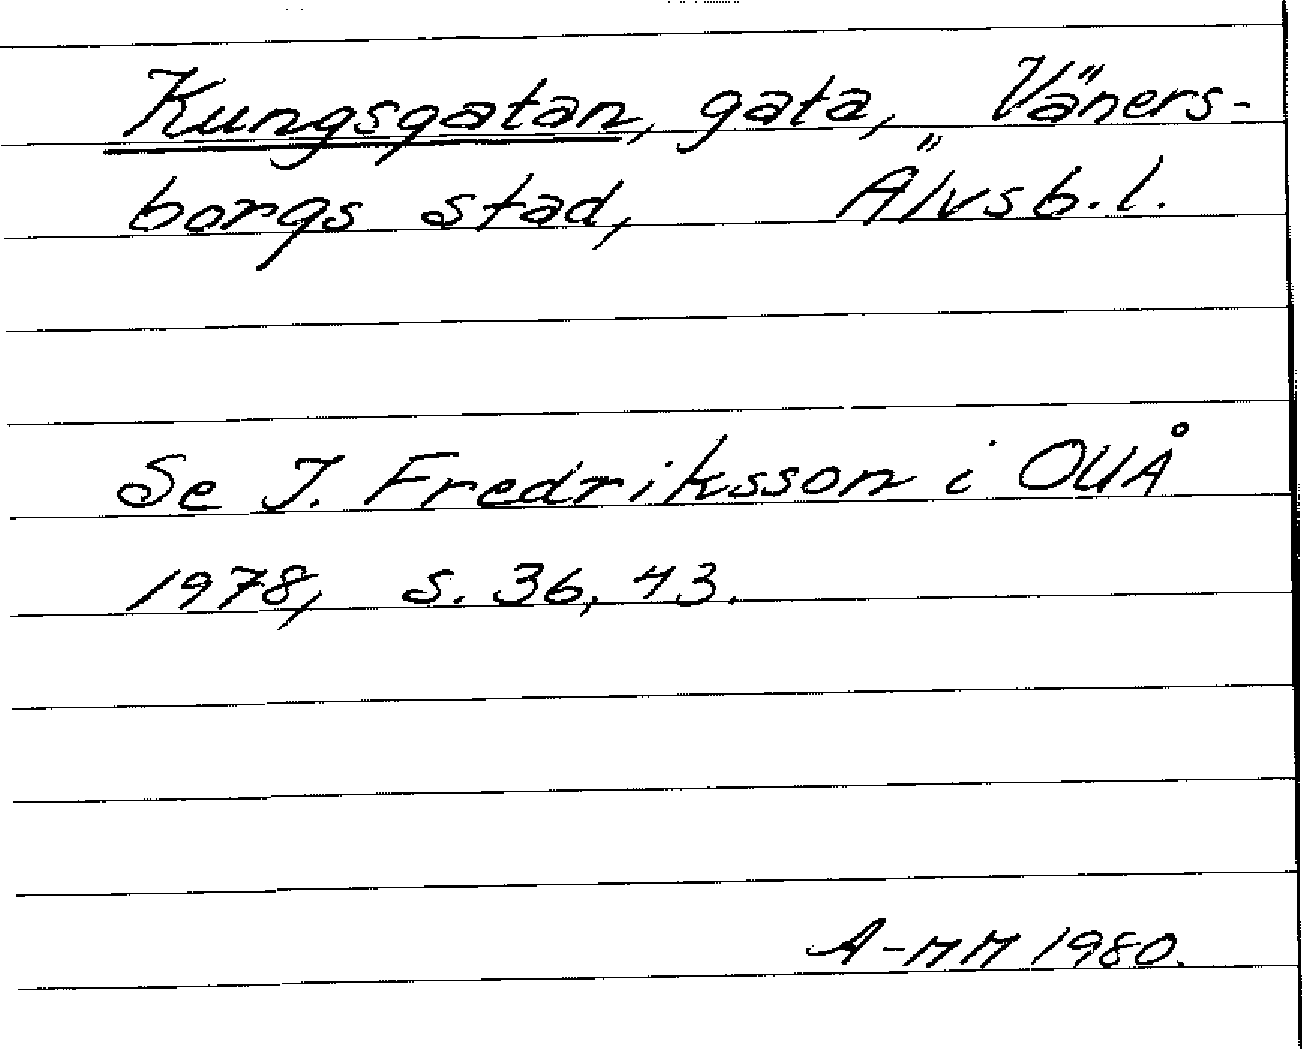 Kungsgatan, gata, Väners-
borgs stad, Älvsb.l.
Se I. Fredriksson i OUÅ
1978, s. 36, 43.
A-MM 1980.